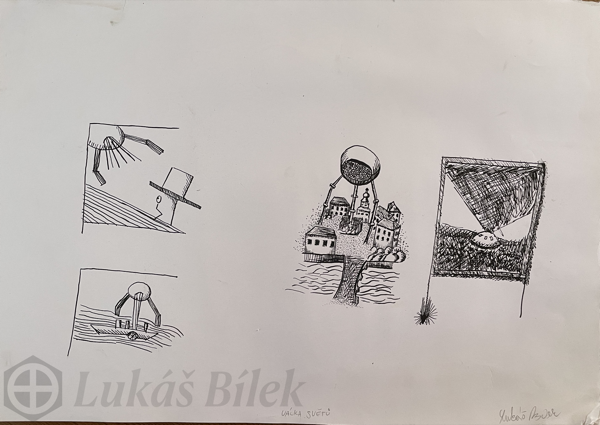 Lukáš Bílek
VÁLKA SVĚTŮ
Lukáš